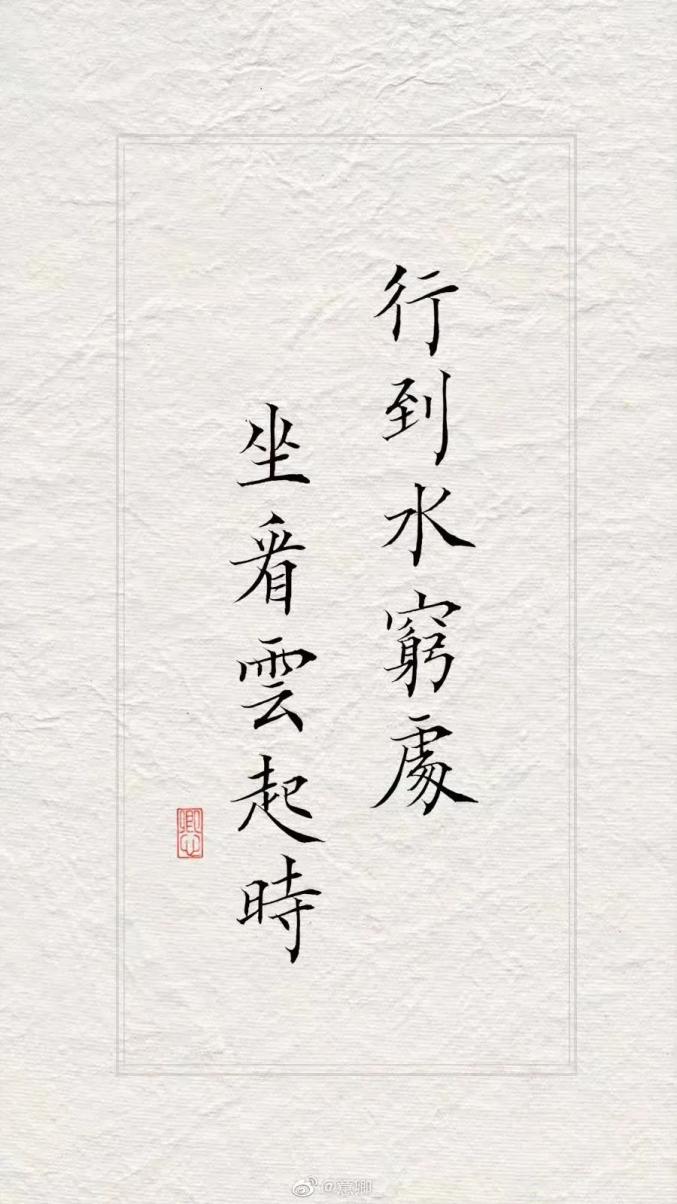 行到水窮處
坐看雲起時
@意卿